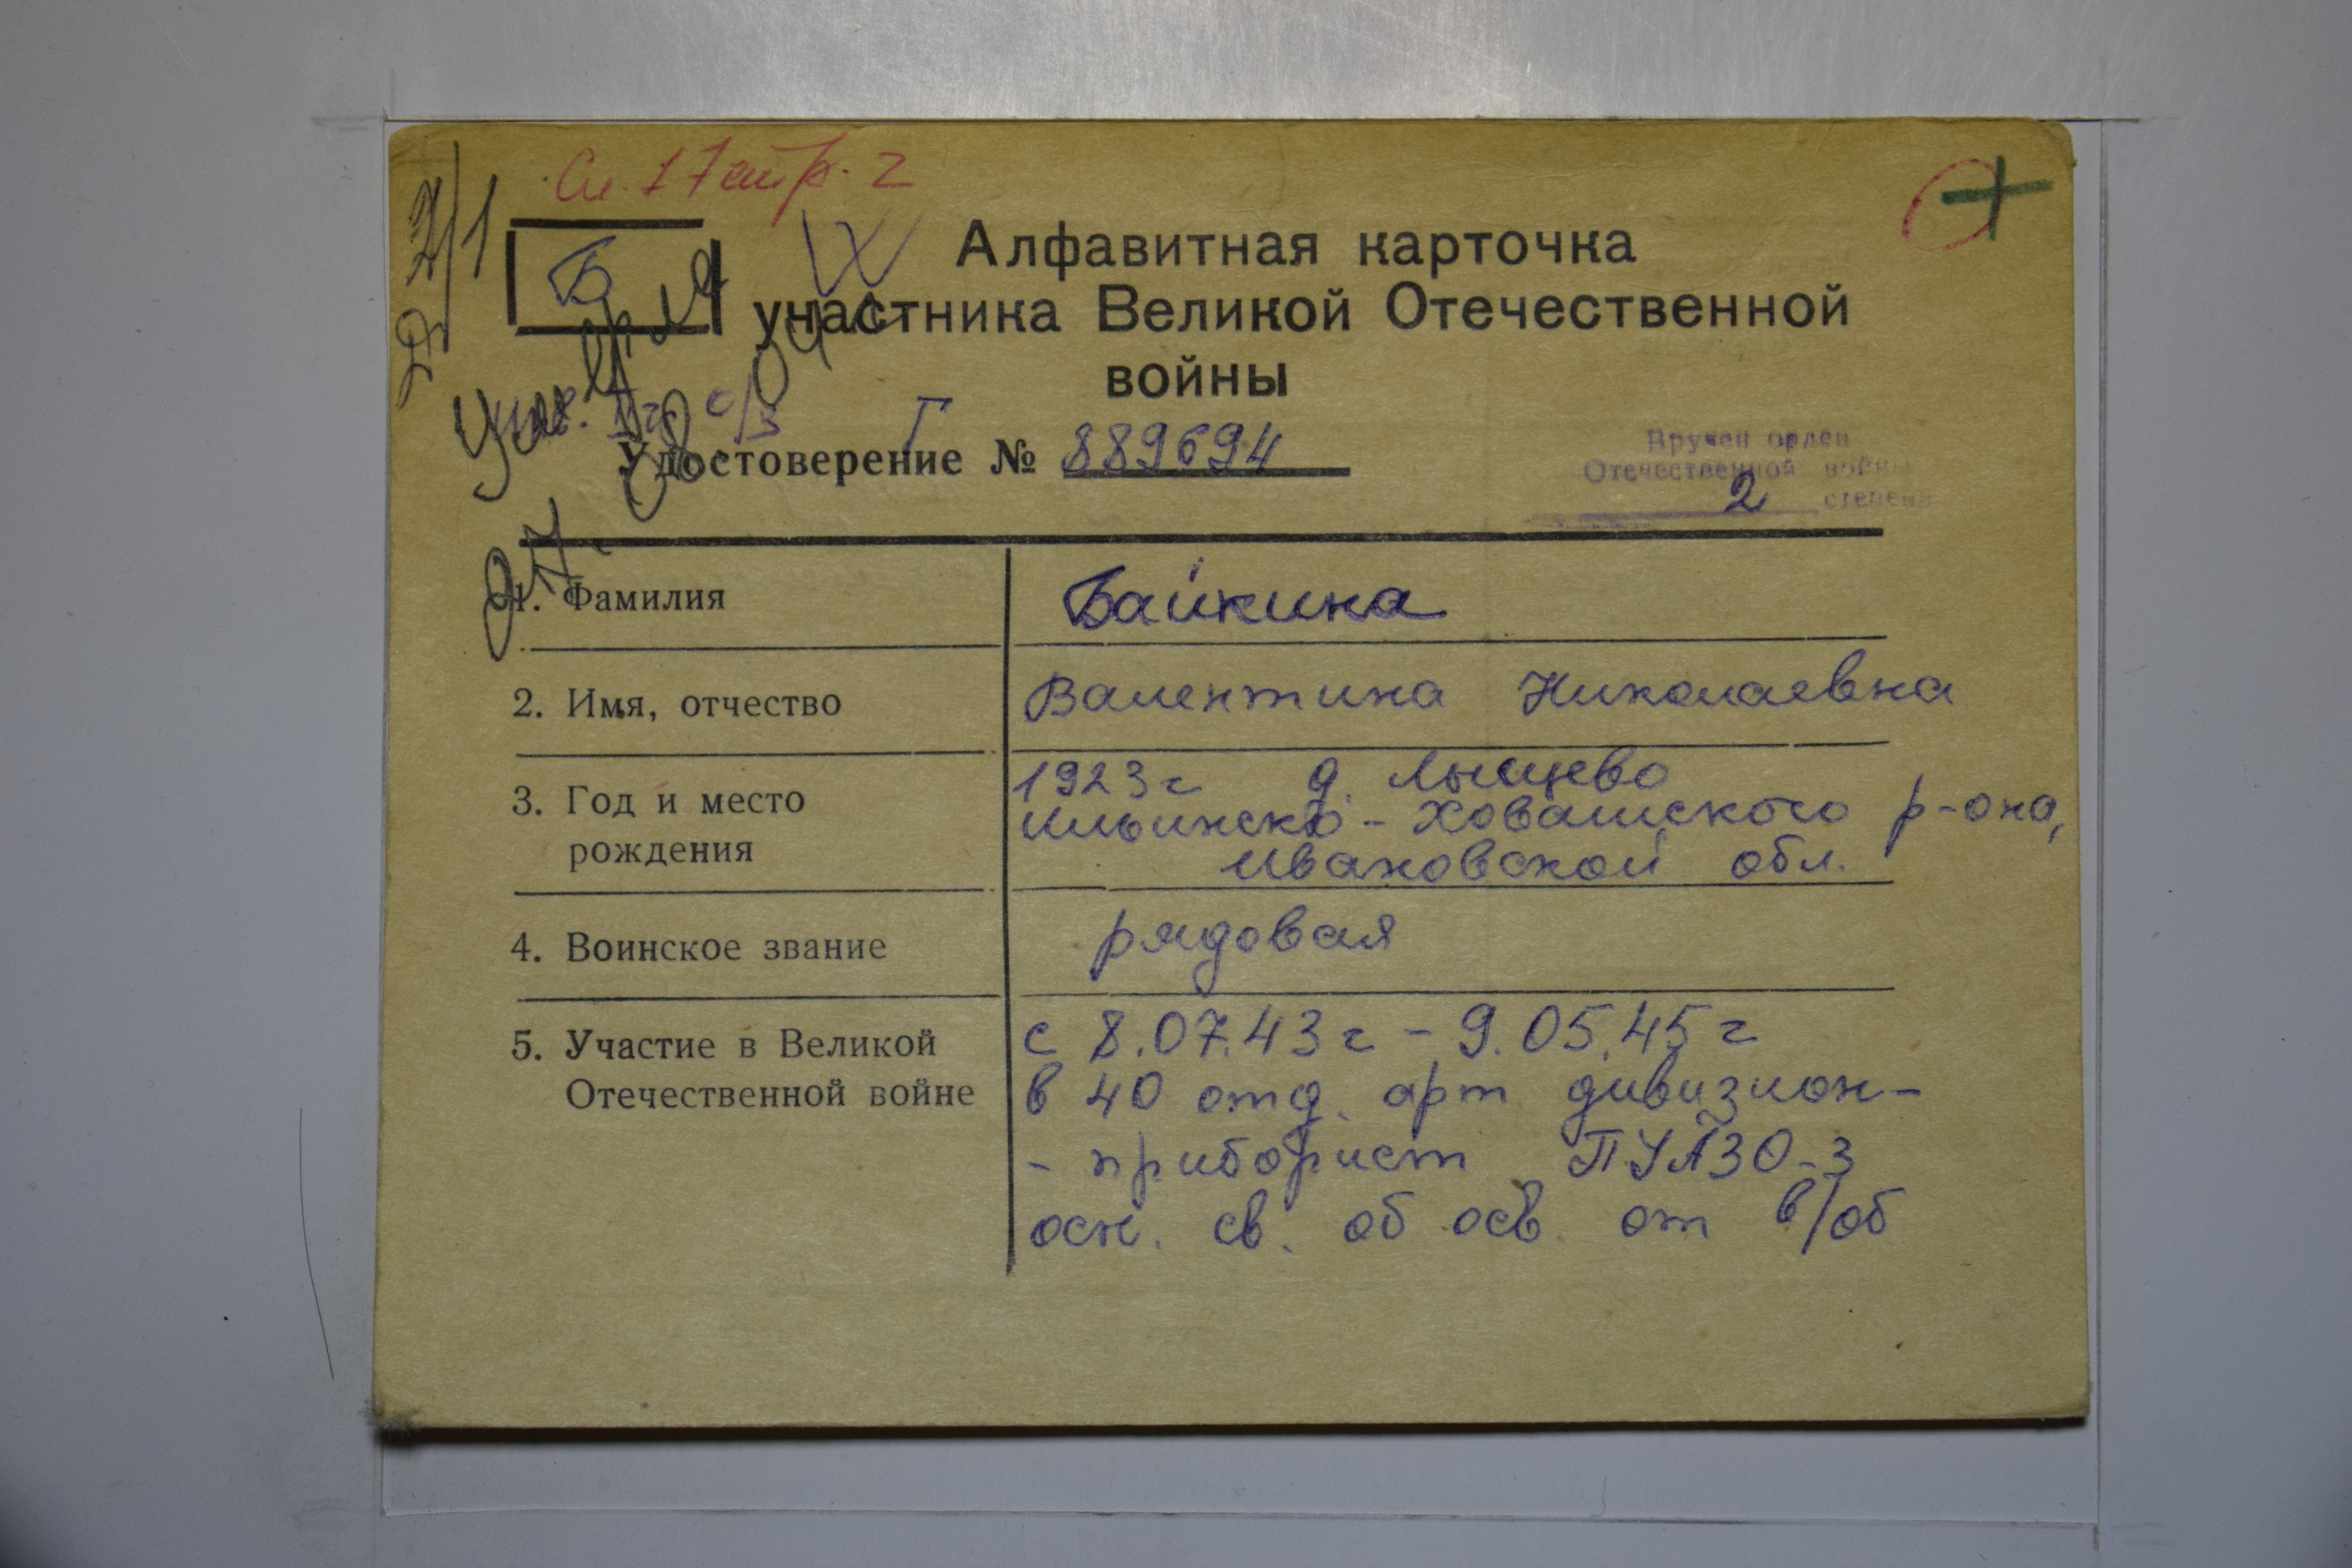 Сп. 17 стр. 2
Д 2/1
Б
Алфавитная карточка
участника Великой Отечественной
войны
Удостоверение № Г 889694
Вручен орден
Отечественной войны
2 степени
1. Фамилия Байкина
2. Имя, отчество Валентина Николаевна
3. Год и место 1923 г д. Лыщево
Ильинско-Хованского р-она,
рождения Ивановской обл.
4. Воинское звание рядовая
5. Участие в Великой с 8.07.43 г - 9.05.45 г
Отечественной войне в 40 отд. арт дивизион-
- приборист ПУАЗО-3
осн. св. об осв. от в/об